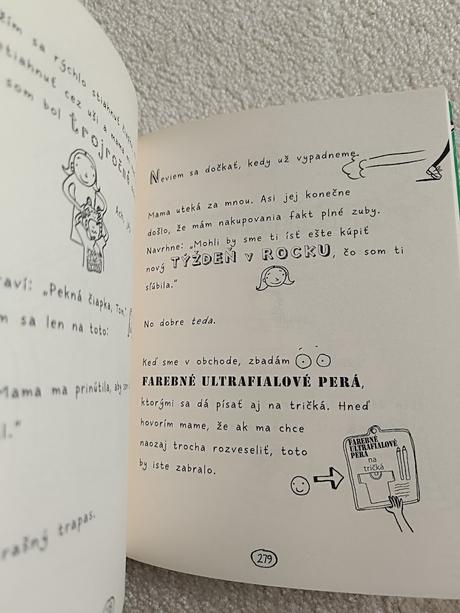 žím sa rýchlo stiahnuť
stiahnuť cez uši a mama
som bol trojročné
Ach,
raví: „Pekná čiapka, Tom.
m sa len na toto:
Mama ma prinútila, aby
l.“
rašný trapas.
Neviem sa dočkať, kedy už vypadneme.
Mama uteká za mnou. Asi jej konečne
došlo, že mám nakupovania fakt plné zuby.
Navrhne: „Mohli by sme ti ísť ešte kúpiť
nový TÝŽDEŇ v ROCKU, čo som ti
sľúbila.“
No dobre teda.
Keď sme v obchode, zbadám
FAREBNÉ ULTRAFIALOVÉ PERÁ,
ktorými sa dá písať aj na tričká. Hneď
hovorím mame, že ak ma chce
naozaj trocha rozveseliť, toto
by iste zabralo.
FAREBNÉ
ULTRAFIALOVÉ
PERÁ
na
tričká
279